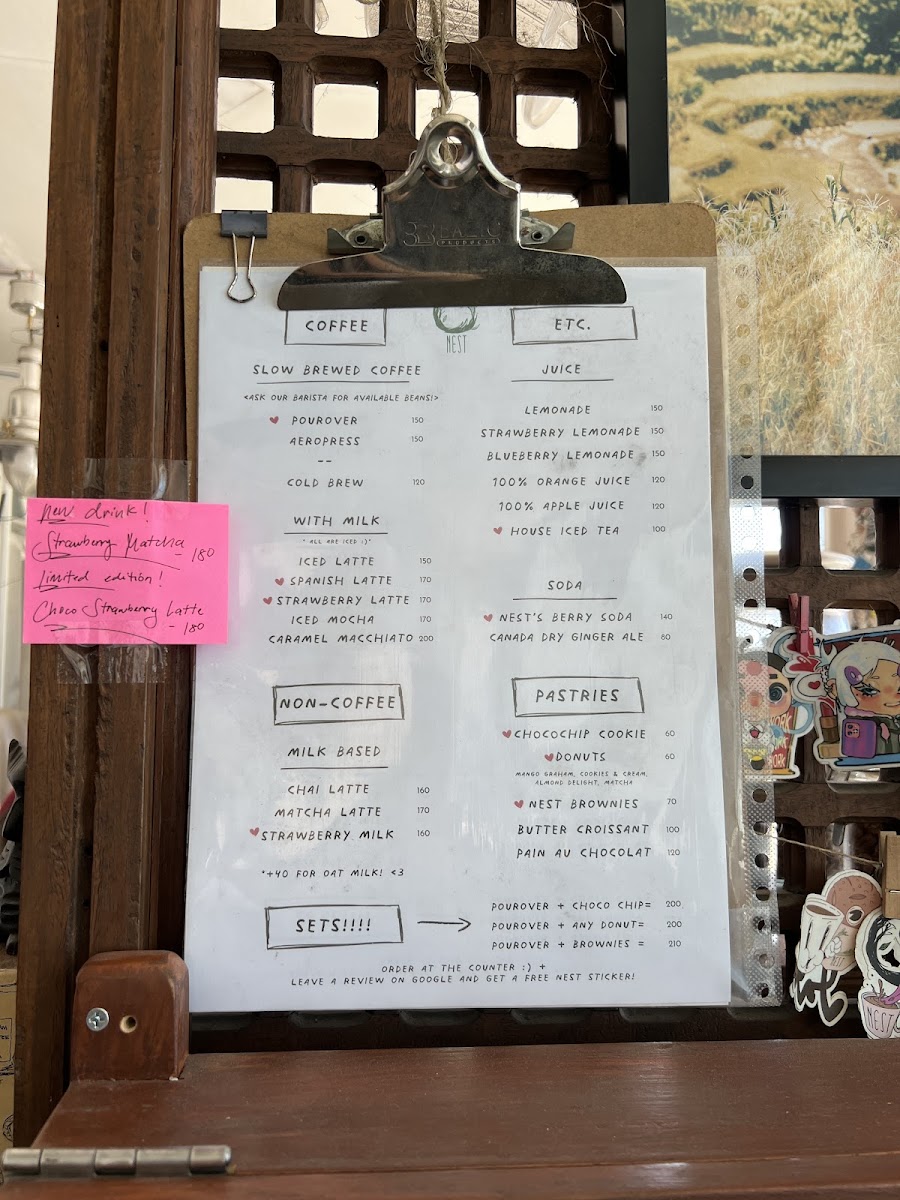 new drink!
Strawberry Matcha - 180
Limited edition!
Choco Strawberry Latte - 180
BEALIO
PRODUCTS
NEST
COFFEE
SLOW BREWED COFFEE
<ASK OUR BARISTA FOR AVAILABLE BEANS!>
POUROVER 150
AEROPRESS 150
--
COLD BREW 120
WITH MILK
* ALL ARE ICED :)*
ICED LATTE 150
SPANISH LATTE 170
STRAWBERRY LATTE 170
ICED MOCHA 170
CARAMEL MACCHIATO 200
NON-COFFEE
MILK BASED
CHAI LATTE 160
MATCHA LATTE 170
STRAWBERRY MILK 160
*+40 FOR OAT MILK! <3
ETC.
JUICE
LEMONADE 150
STRAWBERRY LEMONADE 150
BLUEBERRY LEMONADE 150
100% ORANGE JUICE 120
100% APPLE JUICE 120
HOUSE ICED TEA 100
SODA
NEST'S BERRY SODA 140
CANADA DRY GINGER ALE 60
PASTRIES
CHOCOCHIP COOKIE 60
DONUTS 60
MANGO GRAHAM, COOKIES & CREAM,
ALMOND DELIGHT, MATCHA
NEST BROWNIES 70
BUTTER CROISSANT 100
PAIN AU CHOCOLAT 120
SETS!!!!
POUROVER + CHOCO CHIP= 200
POUROVER + ANY DONUT= 200
POUROVER + BROWNIES = 210
ORDER AT THE COUNTER :) +
LEAVE A REVIEW ON GOOGLE AND GET A FREE NEST STICKER!
NEST